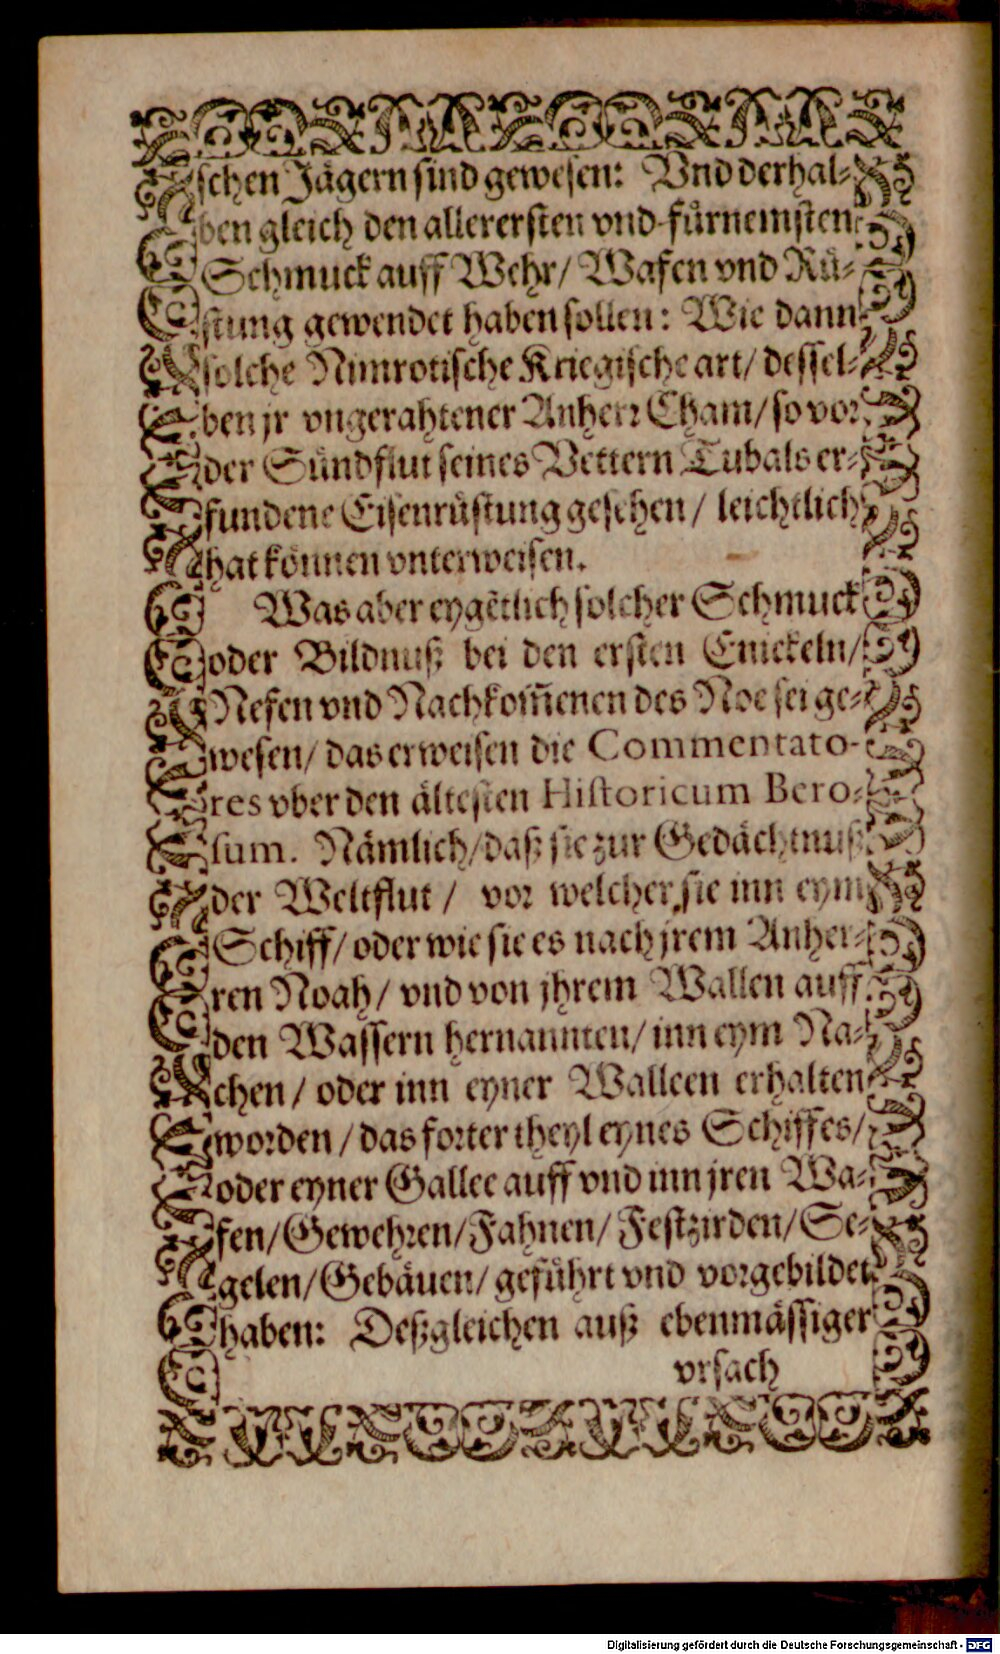 schen Jägern sind gewesen: Vnd derhal-
ben gleich den allerersten vnd fürnemsten
Schmuck auff Wehr/ Wafen vnd Rü-
stung gewendet haben sollen: Wie dann
solche Nimrotische Kriegische art/ dessel-
ben jr vngerahtener Anherr Cham/ so vor
der Sündflut seines Vettern Tubals er-
fundene Eisenrüstung gesehen/ leichtlich
hat können vnterweisen.
Was aber eygẽtlich solcher Schmuck
oder Bildnuß bei den ersten Enickeln/
Nefen vnd Nachkom̃enen des Noe sei ge-
wesen/ das erweisen die Commentato-
res vber den ältesten Historicum Bero-
sum. Nämlich/ daß sie zur Gedächtnuß
der Weltflut/ vor welcher sie inn eym
Schiff/ oder wie sie es nach jrem Anher-
ren Noah/ vnd von jhrem Wallen auff
den Wassern hernannten/ inn eym Na-
chen/ oder inn eyner Walleen erhalten
worden/ das forter theyl eynes Schiffes/
oder eyner Gallee auff vnd inn jren Wa-
fen/ Gewehren/ Fahnen/ Festzirden/ Se-
gelen/ Gebäuen/ geführt vnd vorgebildet
haben: Deßgleichen auß ebenmässiger
vrsach
Digitalisierung gefördert durch die Deutsche Forschungsgemeinschaft - DFG